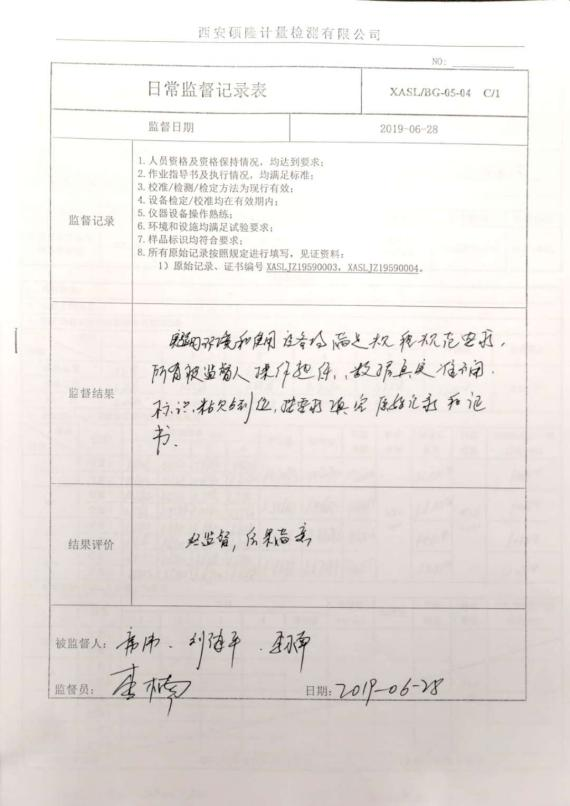 西安硕隆计量检测有限公司
NO:
日常监督记录表
XASL/BG-05-04 C/1
监督日期
2019-06-28
监督记录
1. 人员资格及资格保持情况，均达到要求；
2. 作业指导书及执行情况，均满足标准；
3. 校准/检测/检定方法为现行有效；
4. 设备检定/校准均在有效期内；
5. 仪器设备操作熟练；
6. 环境和设施均满足试验要求；
7. 样品标识均符合要求；
8. 所有原始记录按照规定进行填写，见证资料：
1）原始记录、证书编号 XASLJZ19590003，XASLJZ19590004。
监督结果
环境和使用设备均满足规范要求，
所有被监督人操作，数据真实准确，
标识粘贴到位，按要求填写原始记录和证
书。
结果评价
经监督，结果满意
被监督人：席伟、刘建平、
监督员：李楠
日期：2019-06-28